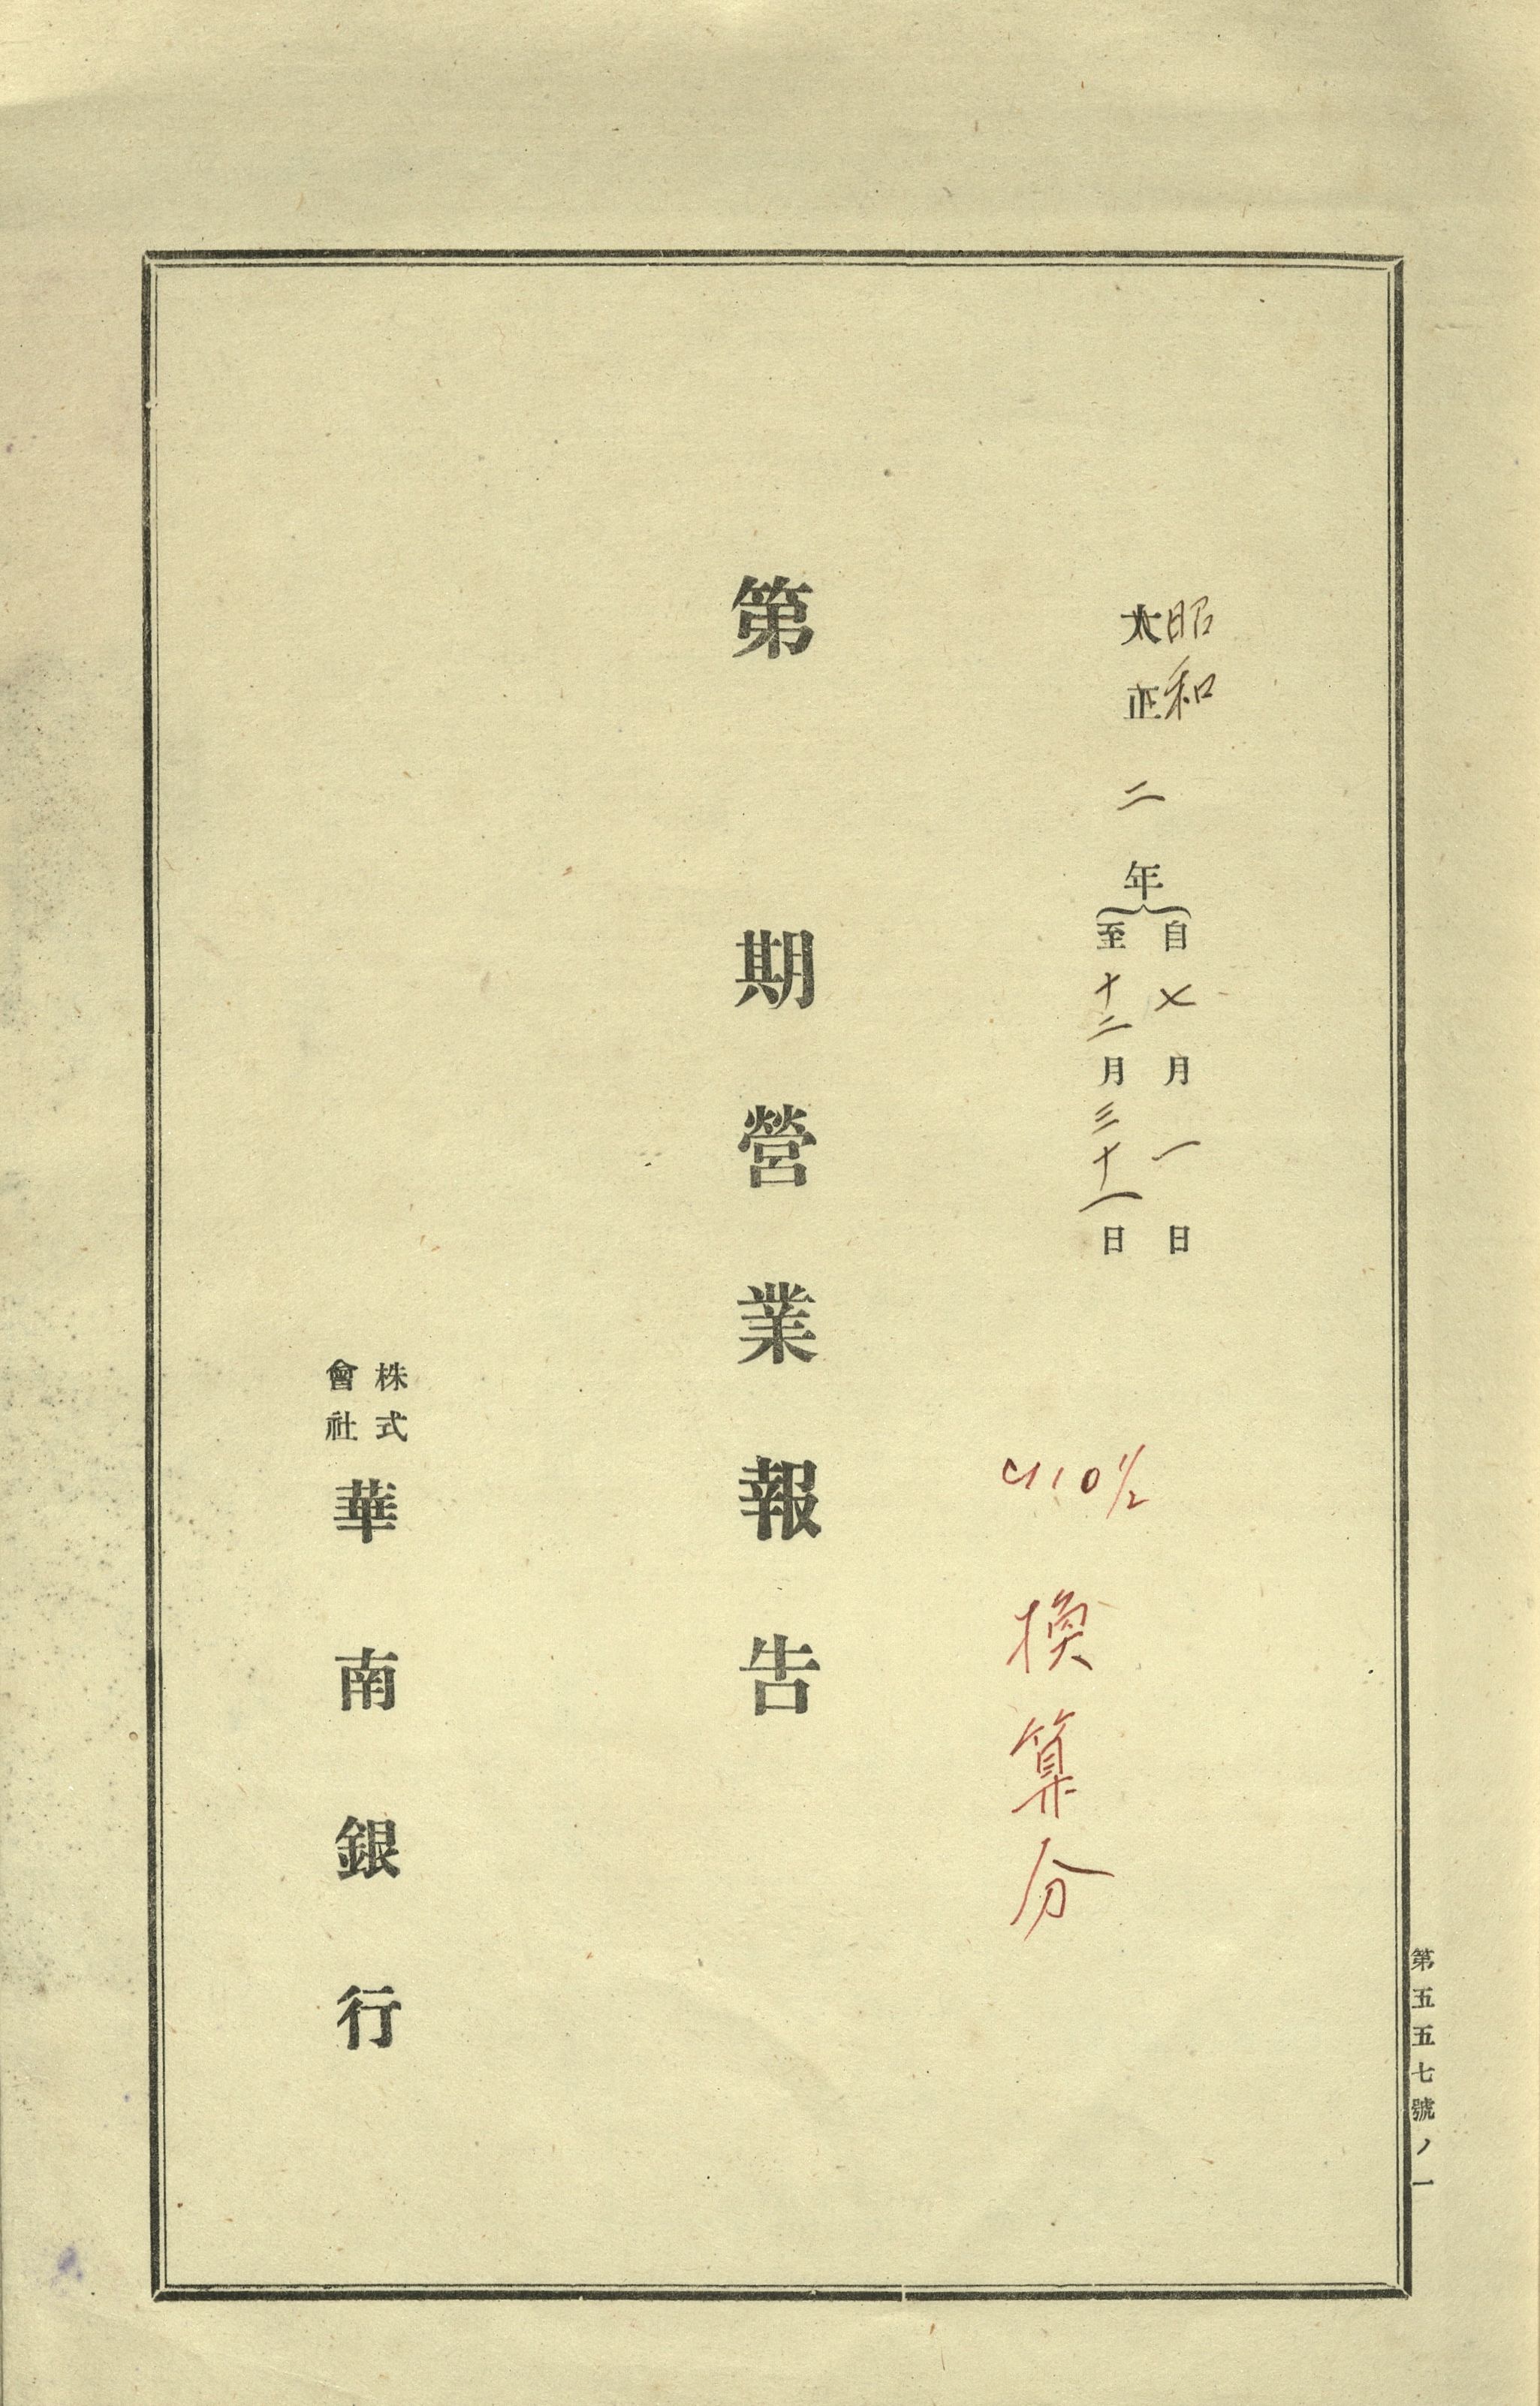 第五五七號ノ一
昭和
大正 二 年
自 七 月 一 日
至 十二 月 三十一 日
換算分
第 期營業報告
株式
會社
華南銀行